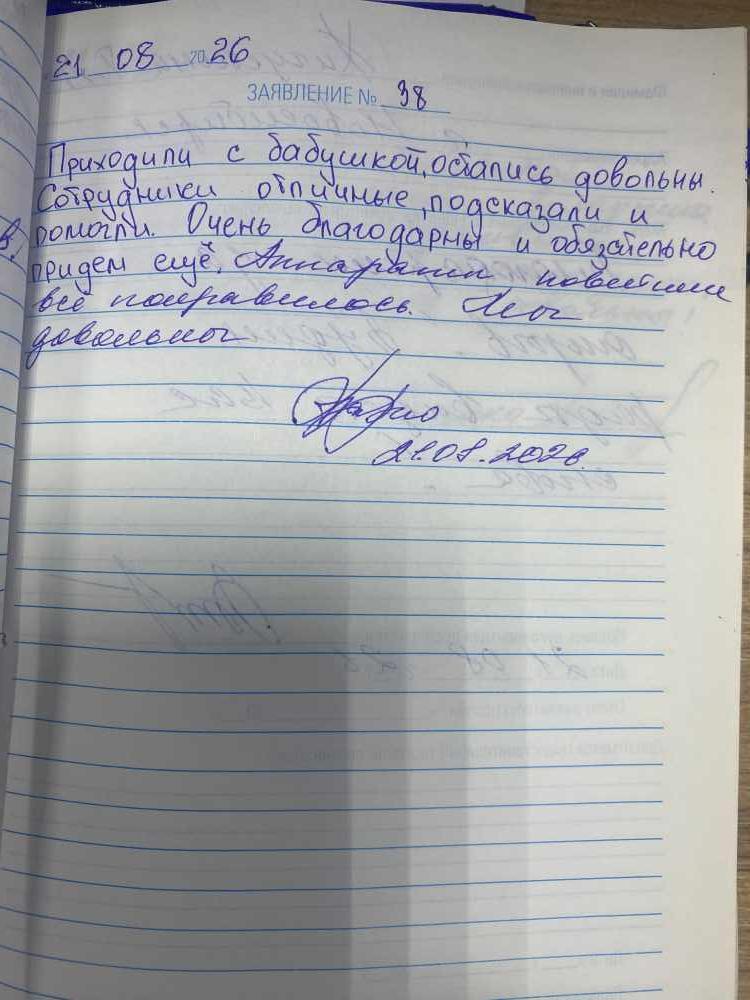 21 08 2026
ЗАЯВЛЕНИЕ № 38
Приходили с бабушкой, остались довольны.
Сотрудники отличные, подсказали и
помогли. Очень благодарны и обязательно
придем ещё. Аппараты новейшие
всё понравилось. Мы
довольны
21.08.2026.